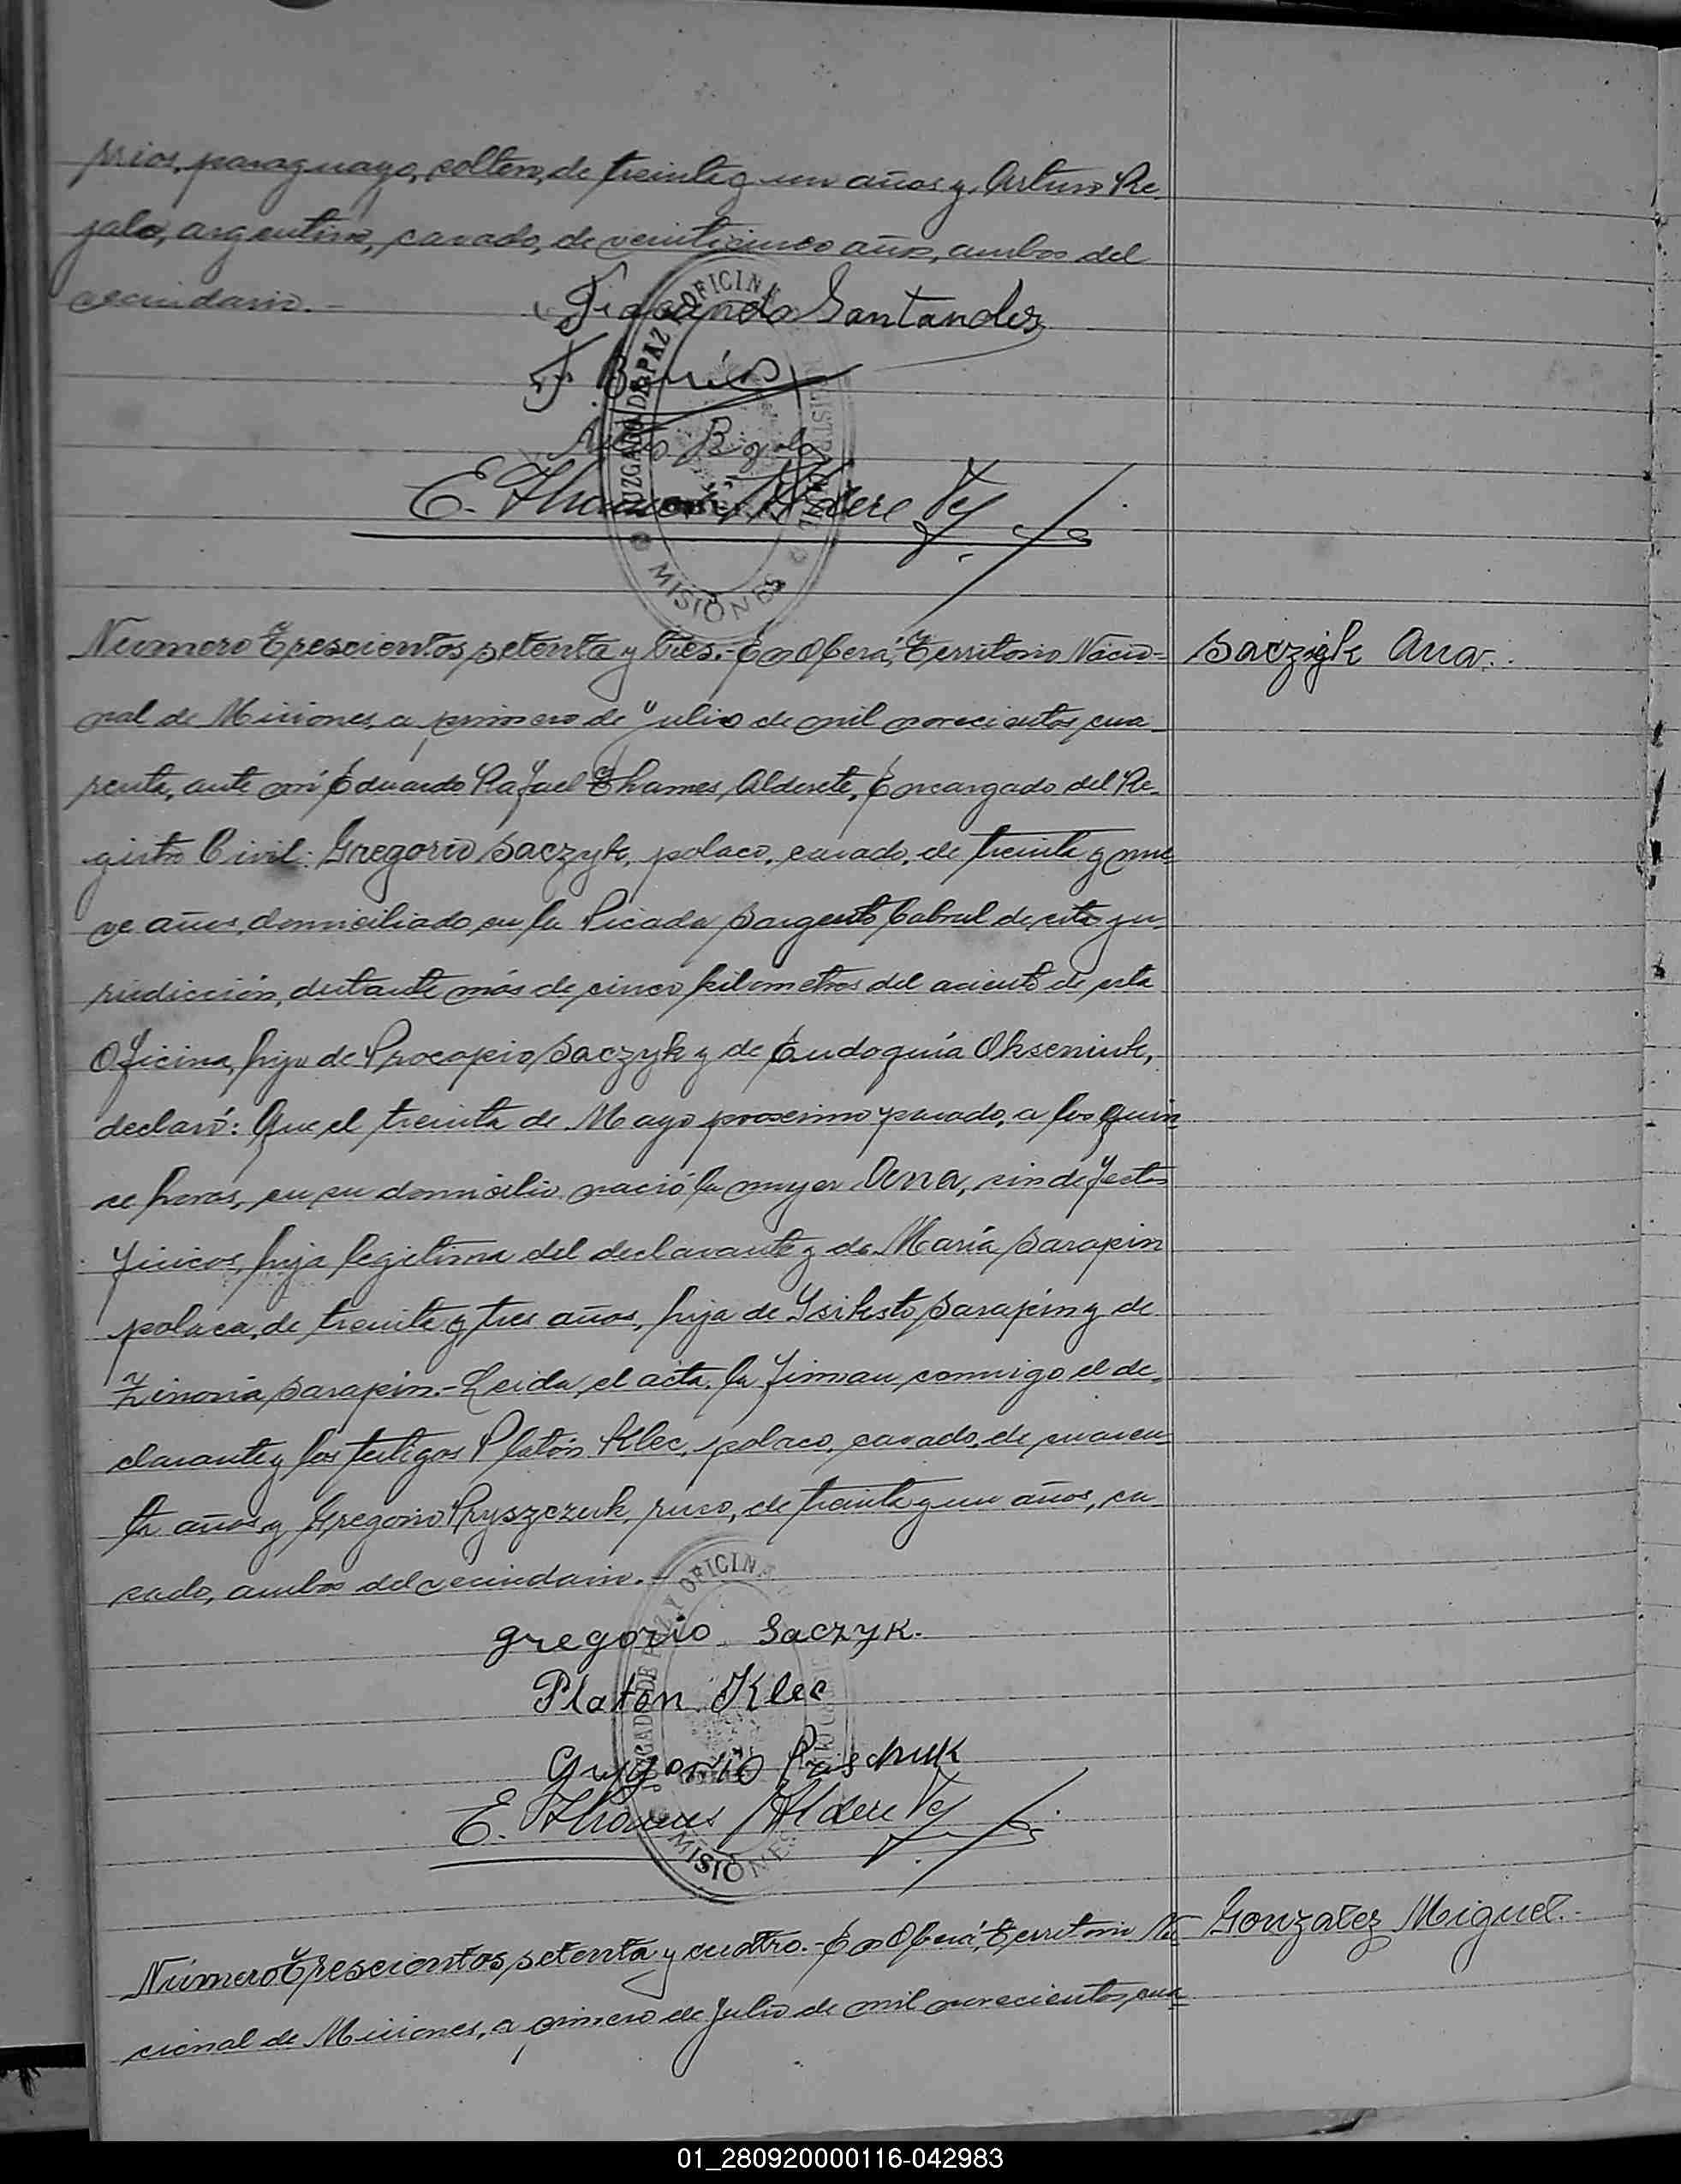 rios, paraguayo, soltero, de treinta y un años y Arturo Re-
galo, argentino, casado, de veinticinco años, ambos del
vecindario.-
Santander
E. Thames Alderete
JUZGADO DE PAZ Y OFICINA
MISIONES
Número Trescientos setenta y tres.- En Oberá, Territorio Nacio-
Saczyk Ana.
nal de Misiones, a primero de Julio de mil novecientos cua-
renta, ante mí Eduardo Rafael Thames Alderete, Encargado del Re-
gistro Civil: Gregorio Saczyk, polaco, casado, de treinta y nue-
ve años, domiciliado en la Picada Sargento Cabral de esta ju-
risdicción, distante más de cinco kilometros del aciento de esta
Oficina, hijo de Procopio Saczyk y de Eudoquía Okseniuk,
declaró: Que el treinta de Mayo proximo pasado, a las quin-
ce horas, en su domicilio nació la mujer Ana, sin defectos
físicos, hija legítima del declarante y de María Sarapin
polaca, de treinta y tres años, hija de Isiksto Sarapin y de
Zinovia Sarapin.- Leida el acta, la firman conmigo el de-
clarante y los testigos Platón Klec, polaco, casado, de cuaren-
ta años y Gregorio Ryszczuk, ruso, de treinta y un años, ca-
sado, ambos del vecindario.-
gregorio Saczyk.
Platon Klec
E. Thames Alderete
OFICINA
MISIONES
Número Trescientos setenta y cuatro.- En Oberá, Territorio Na-
Gonzalez Miguel.-
cional de Misiones, a primero de Julio de mil novecientos cua-
01_280920000116-042983